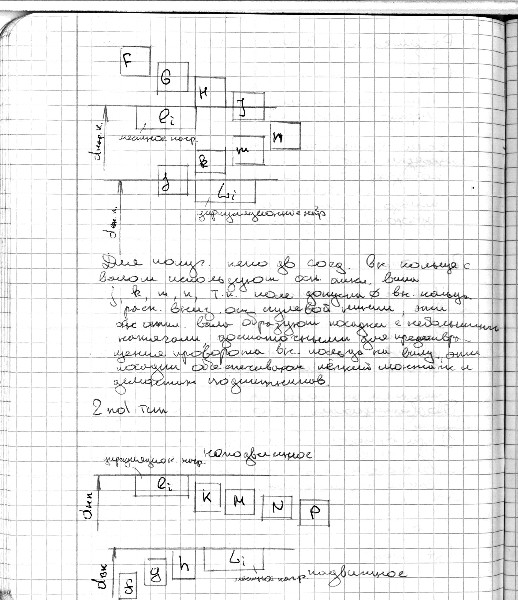 F
G
H
J
ei
местное нагр.
dнар.к.
n
m
k
j
Li
циркуляционное нагр
dвн.к.
Для получ. непо дв соед. вн кольца с
валом используют осн откл. вала
j, k, m, n, т.к. поле допуска ∅ вн. кольца
расп. вниз от нулевой линии, эти
откл. вала образуют посадки с небольшими
натягами достаточными для предотвра-
щения проворота вн. кольца на валу. эти
посадки обеспечивают лёгкий монтаж и
демонтаж подшипников.
2 под тип
циркуляцион. нагр. неподвижное
ei
K M N P
dнк
dвк
g h Li
местное нагр подвижное